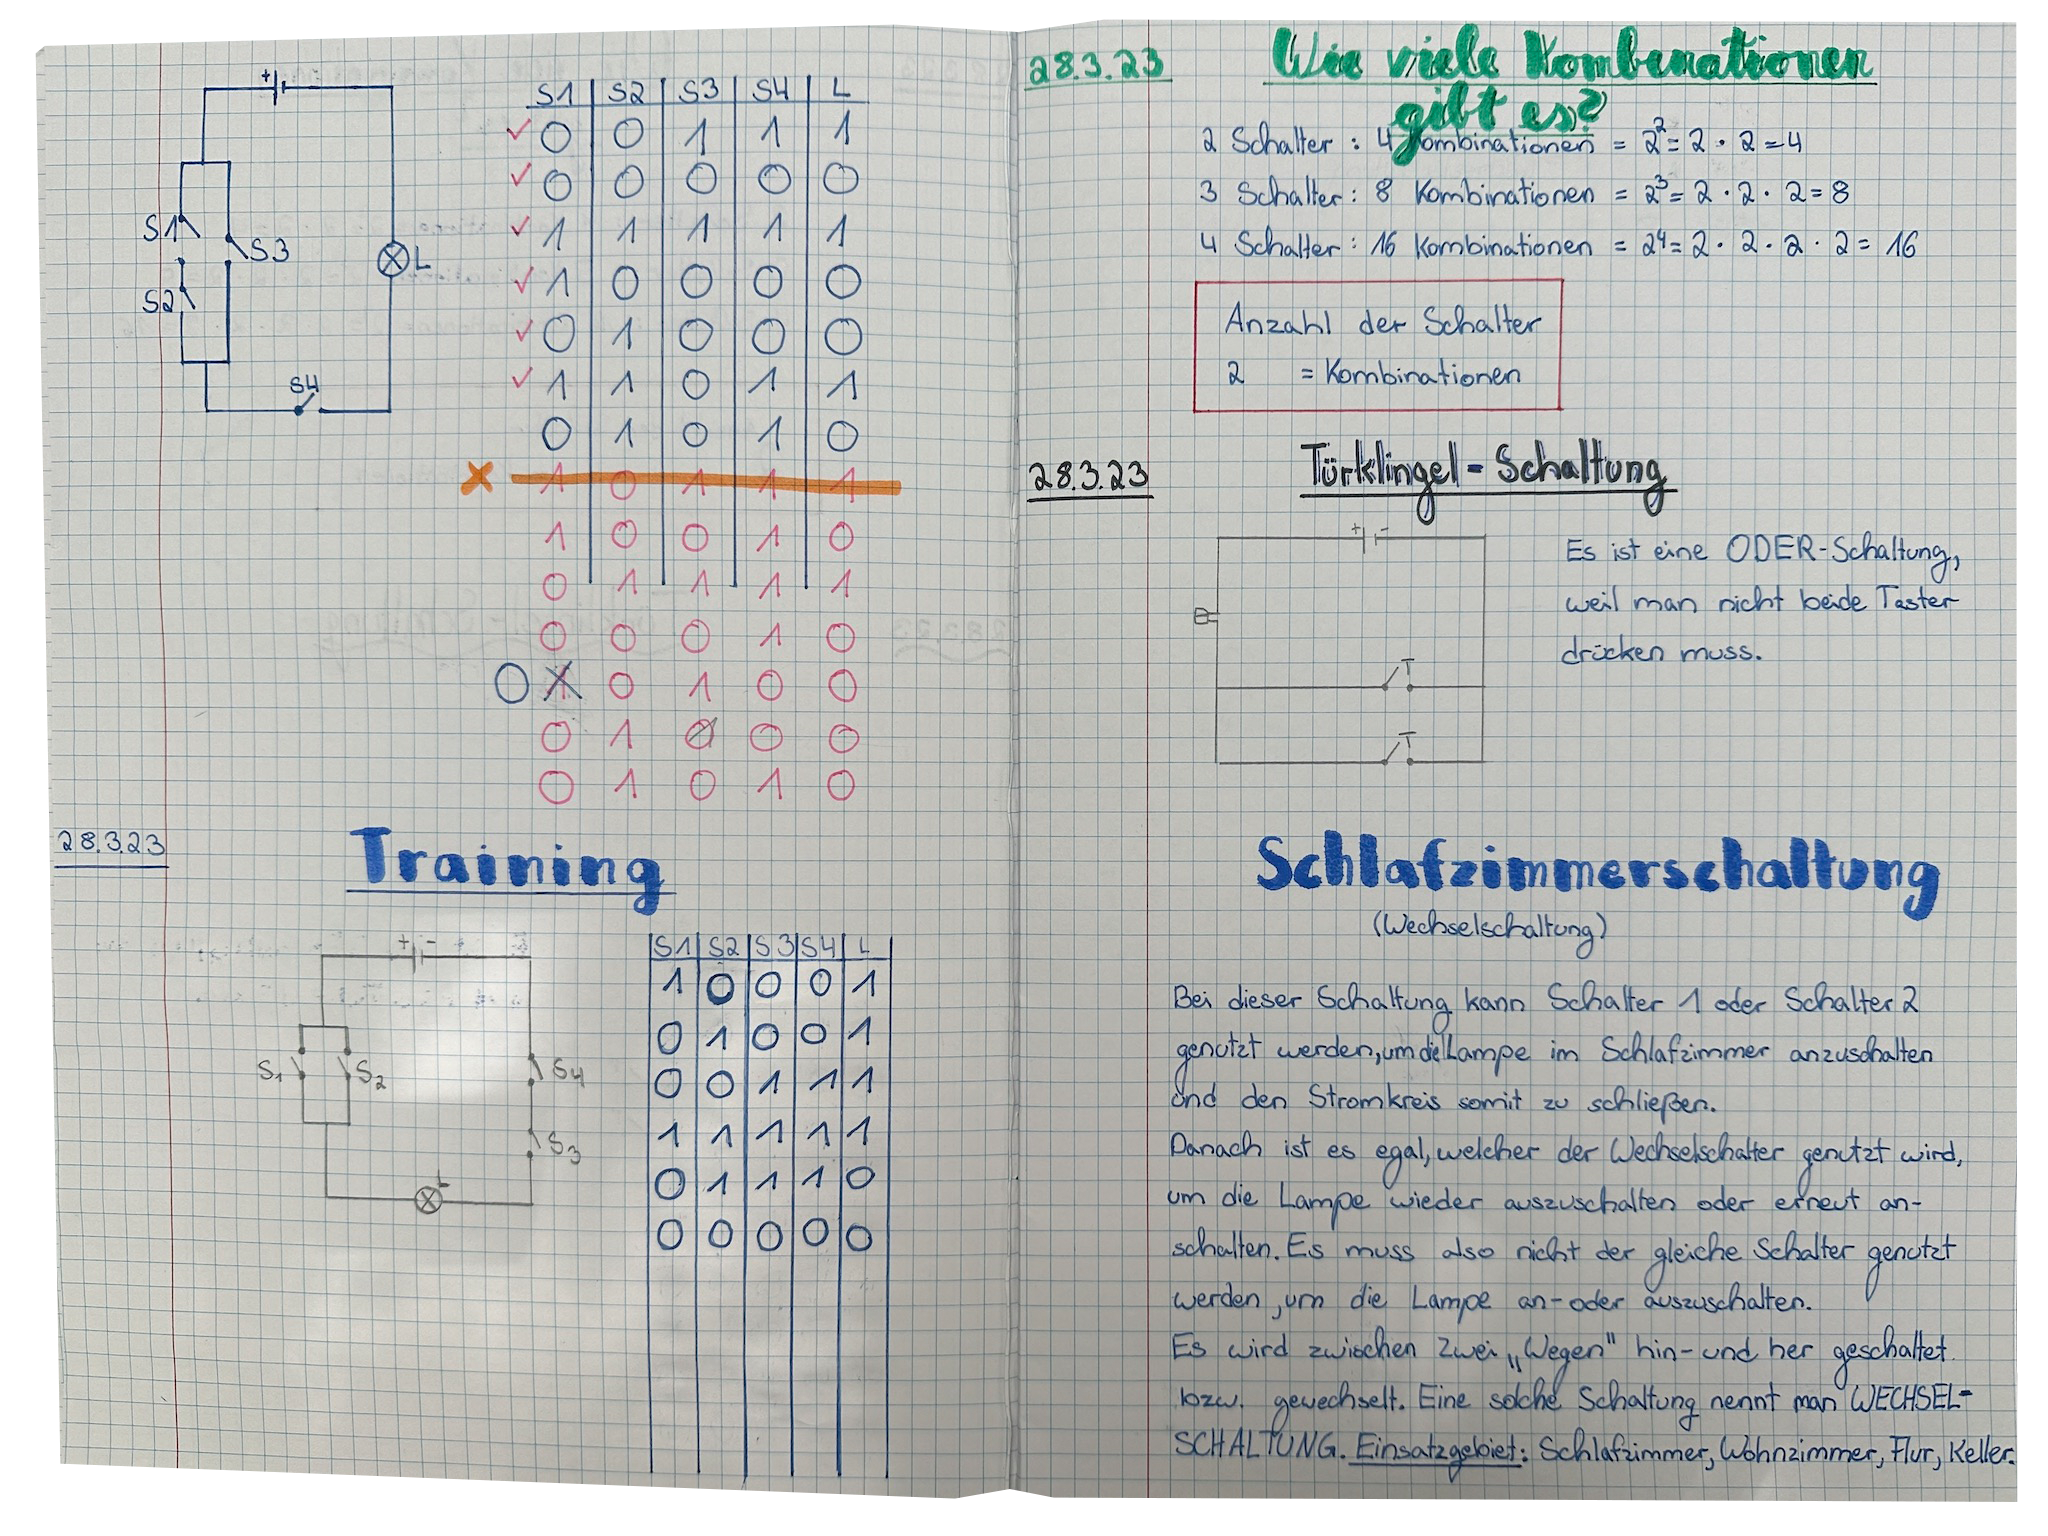 +
S1
S3
L
S2
S4
S1 S2 S3 S4 L
✓ 0 0 1 1 1
✓ 0 0 0 0 0
✓ 1 1 1 1 1
✓ 1 0 0 0 0
✓ 0 1 0 0 0
✓ 1 1 0 1 1
0 1 0 1 0
x 1 0 1 1 1
1 0 0 1 0
0 1 1 1 1
0 0 0 1 0
0 0 1 0 0
0 1 0 0 0
0 1 0 1 0
28.3.23
Training
+ -
S1 S2 S4
S3
S1 S2 S3 S4 L
1 0 0 0 1
0 1 0 0 1
0 0 1 1 1
1 1 1 1 1
0 1 1 1 0
0 0 0 0 0
28.3.23
Wie viele Kombenationen
gibt es?
2 Schalter : 4 Kombinationen = 2² = 2 · 2 = 4
3 Schalter : 8 Kombinationen = 2³ = 2 · 2 · 2 = 8
4 Schalter : 16 Kombinationen = 2⁴ = 2 · 2 · 2 · 2 = 16
Anzahl der Schalter
2 = Kombinationen
28.3.23
Türklingel - Schaltung
+ -
T
T
Es ist eine ODER-Schaltung,
weil man nicht beide Taster
drücken muss.
Schlafzimmerschaltung
(Wechselschaltung)
Bei dieser Schaltung kann Schalter 1 oder Schalter 2
genutzt werden, um die Lampe im Schlafzimmer anzuschalten
und den Stromkreis somit zu schließen.
Danach ist es egal, welcher der Wechselschalter genutzt wird,
um die Lampe wieder auszuschalten oder erneut an-
schalten. Es muss also nicht der gleiche Schalter genutzt
werden, um die Lampe an- oder auszuschalten.
Es wird zwischen zwei „Wegen" hin- und her geschaltet
bzw. gewechselt. Eine solche Schaltung nennt man WECHSEL-
SCHALTUNG. Einsatzgebiet: Schlafzimmer, Wohnzimmer, Flur, Keller.